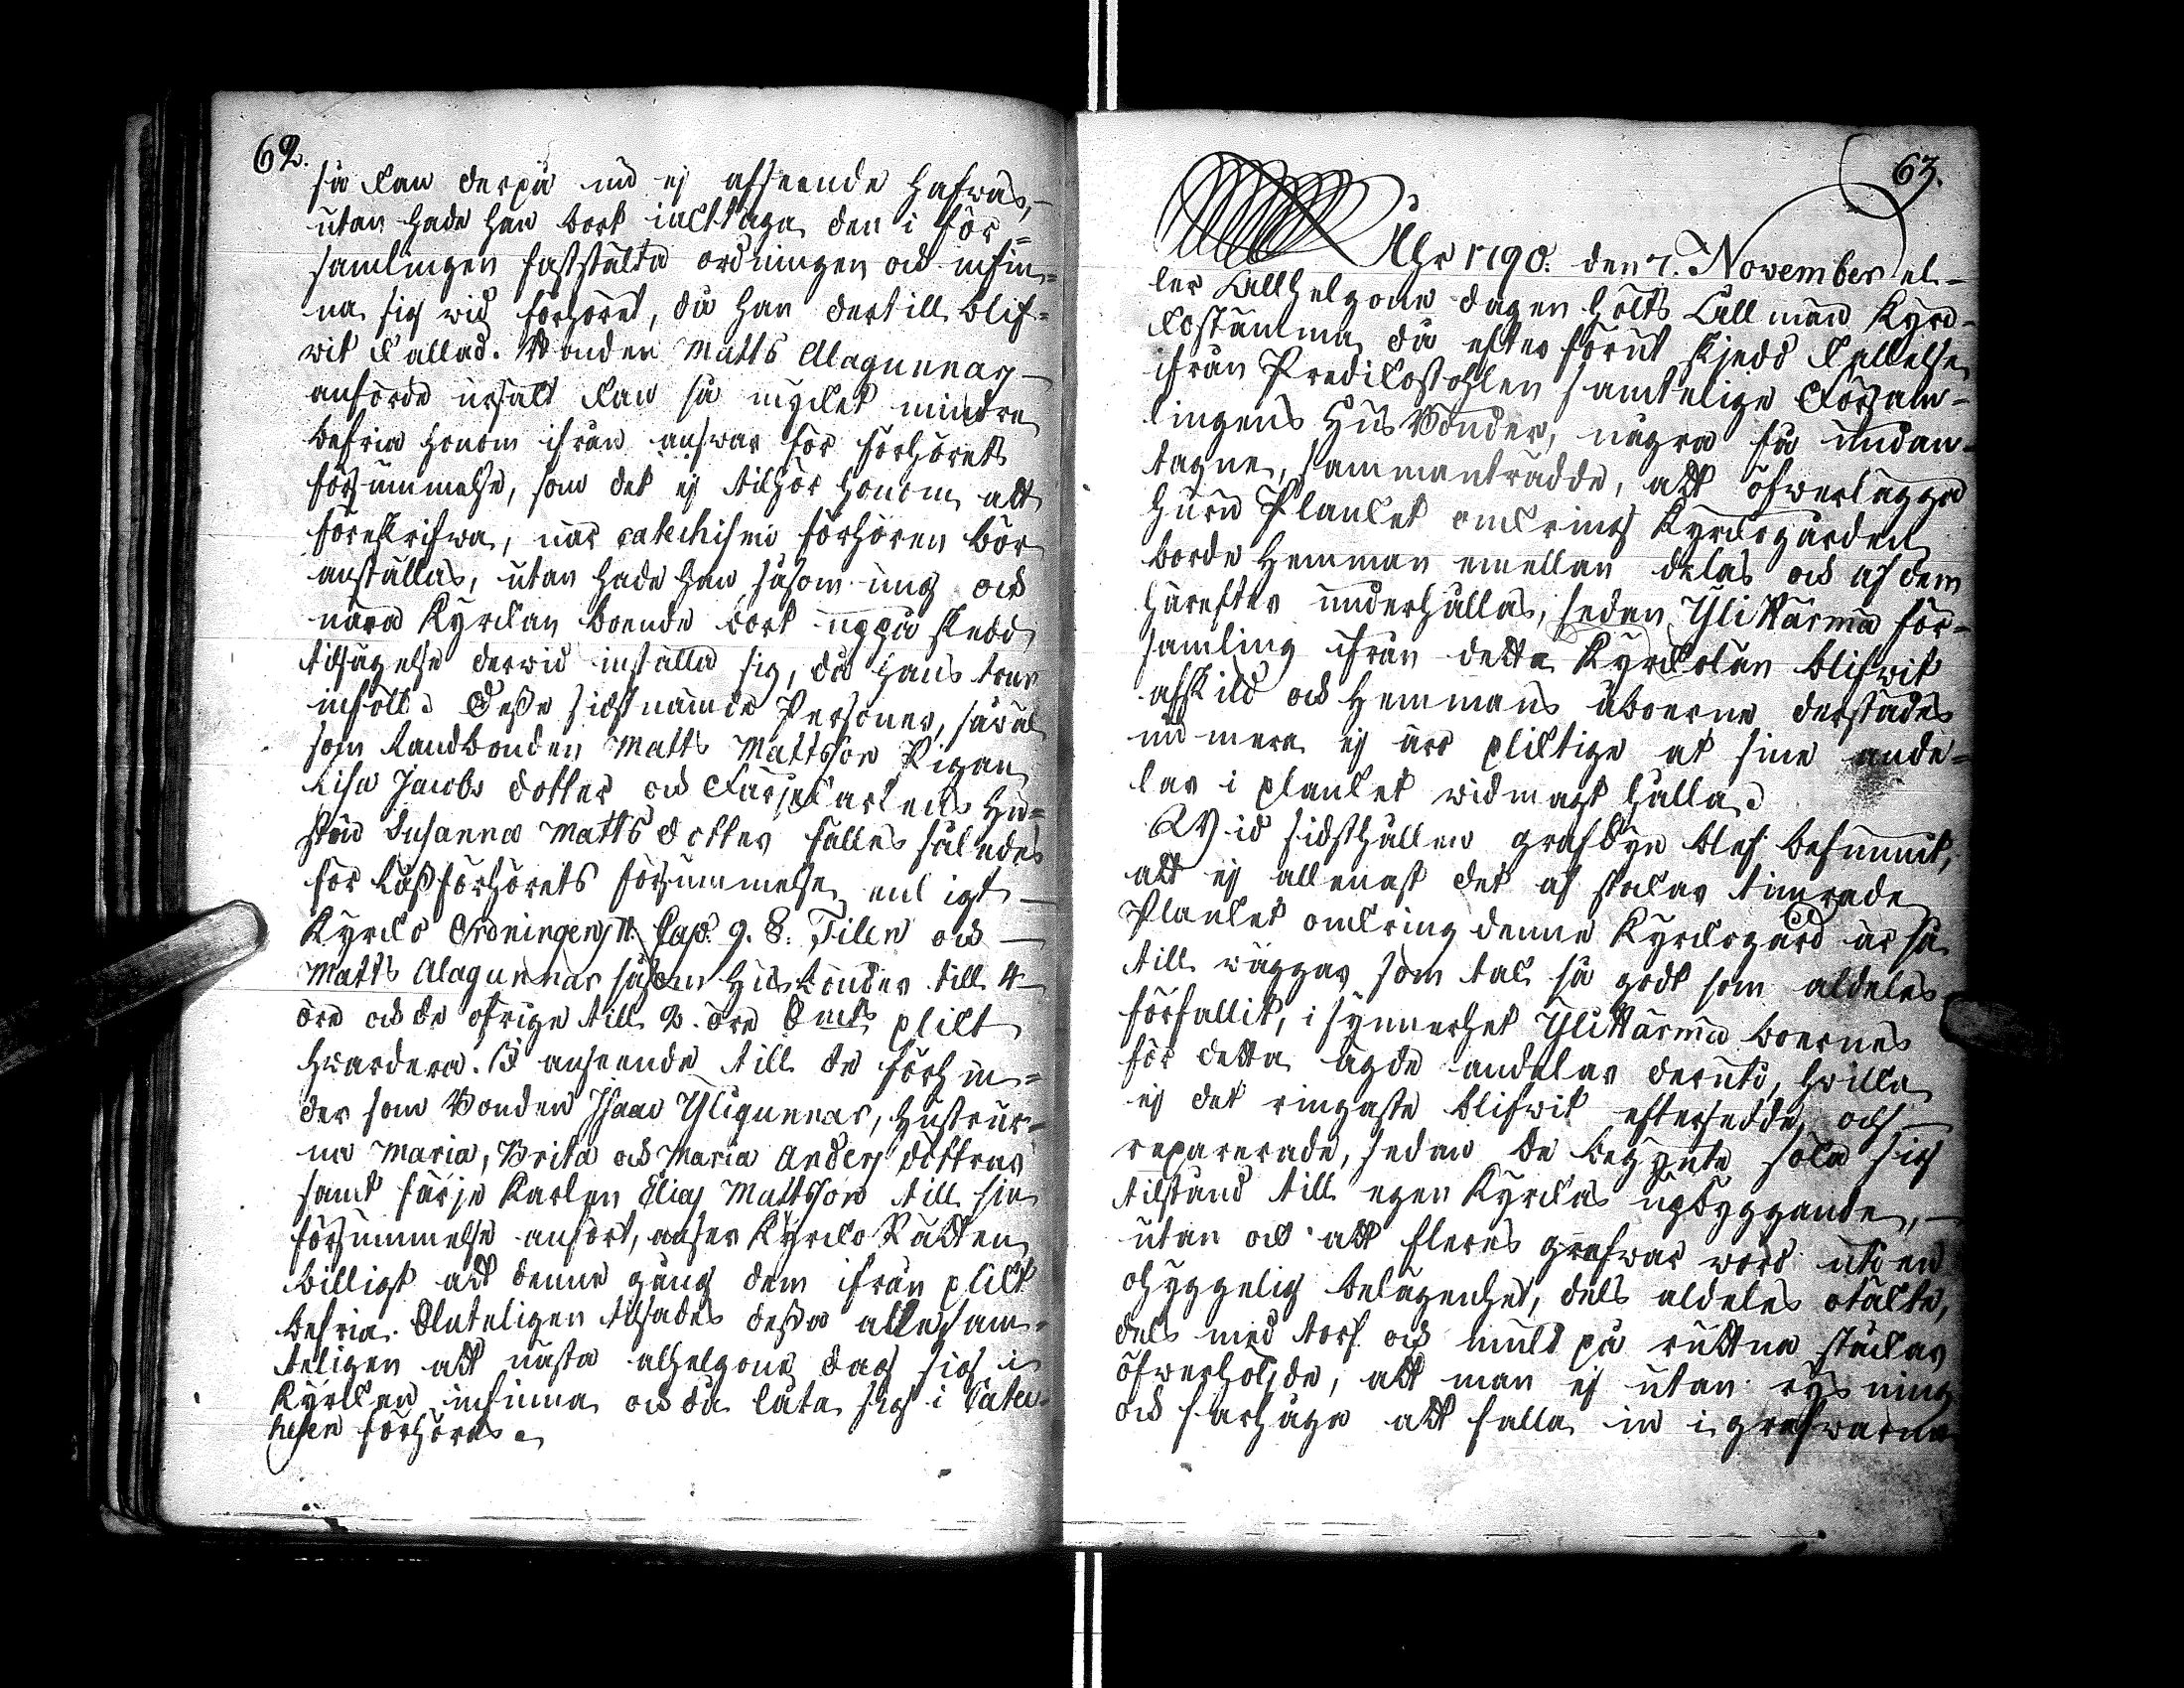 62.
så kan derpå nu ej afseende hafwas,
utan hade han bort iackttaga den i för=
samlingen faststälta ordningen och infin=
na sig wid förhöret, då han dertill blif=
wit kallad. Bonden Matts Alaqunnas
anförde ursäkt kan så mycket mindre
befria honom ifrån answar för förhörets
försummelse, som det ej tilhör honom att
föreskrifwa, när catechismi förhören bör
anställas, utan hade han såsom ung och
nära Kyrckan boende bort uppå skedd
tilsägelse derwid inställa sig, då hans tour
inföll. Desse sidstnämde Personer, såwäl
som Landbonden Matts Mattsson Pigan
Lisa Jacobs dotter och Färjekarlens Hu=
stru Susanna Matts dotter fälles således
för Läsförhörets försummelse enligt
Kyrcko Ordningens Cap. 9. §. Tilen och
Matts Alaqunnas såsom Husbonden till 4
öre och de öfrige till 2. öre Smts plikt
hwardera. I anseende till de förhin=
der som Bonden Isaac Yliqunnas, hustrur=
na Maria, Brita och Maria Anders döttrar
samt färje Karlen Elias Mattsson till sin
försummelse anfört, anser Kyrcko Rätten
billigt att denne gång dem ifrån plikt
befria. Sluteligen tilsades dessa allesam=
teligen att nästa alhelgone dag sig i
Kyrckan infinna och då låta sig i Cate=
chesen förhöras.
63.
Åhr 1790. den 7. November el=
ler Allhelgone dagen hölts Allmän Kyrc=
kostämma, då efter förut skjedd kallelse
ifrån Predikostohlen samtelige Församl=
lingens Hus Bönder, några få undan=
tagne, sammanträdde, att öfwerlägga
huru Plancket omkring Kyrckogården
borde Hemman emellan delas och af dem
härefter underhållas, sedan Ylihärmä för=
samling ifrån detta Kyrckolän blifwit
afskild och Hemmans åboerne derstädes
nu mera ej äro pliktige at sine ande=
lar i plancket widmagt hålla.
Wid sidsthållen grafsyn blef befunnit,
att ej allenast det af stockar timrade
Plancket omkring denne Kyrckogård är så
till wäggar som tak så godt som aldeles
förfallit, i synnerhet Ylihärmä boernes
för detta ägde andelar deruti, hwilka
ej det ringaste blifwit eftersedde och
reparerade, sedan de begynte söka sig
tilstånd till egen Kyrckas upbyggande,
utan ock att fleres grafwar woro uti en
ohyggelig belägenhet, dels aldeles otäckte,
dels med torf och mull på ruttna stockar
öfwerhöljde, att man ej utan rysning
och farhåga att falla in i grafwarna